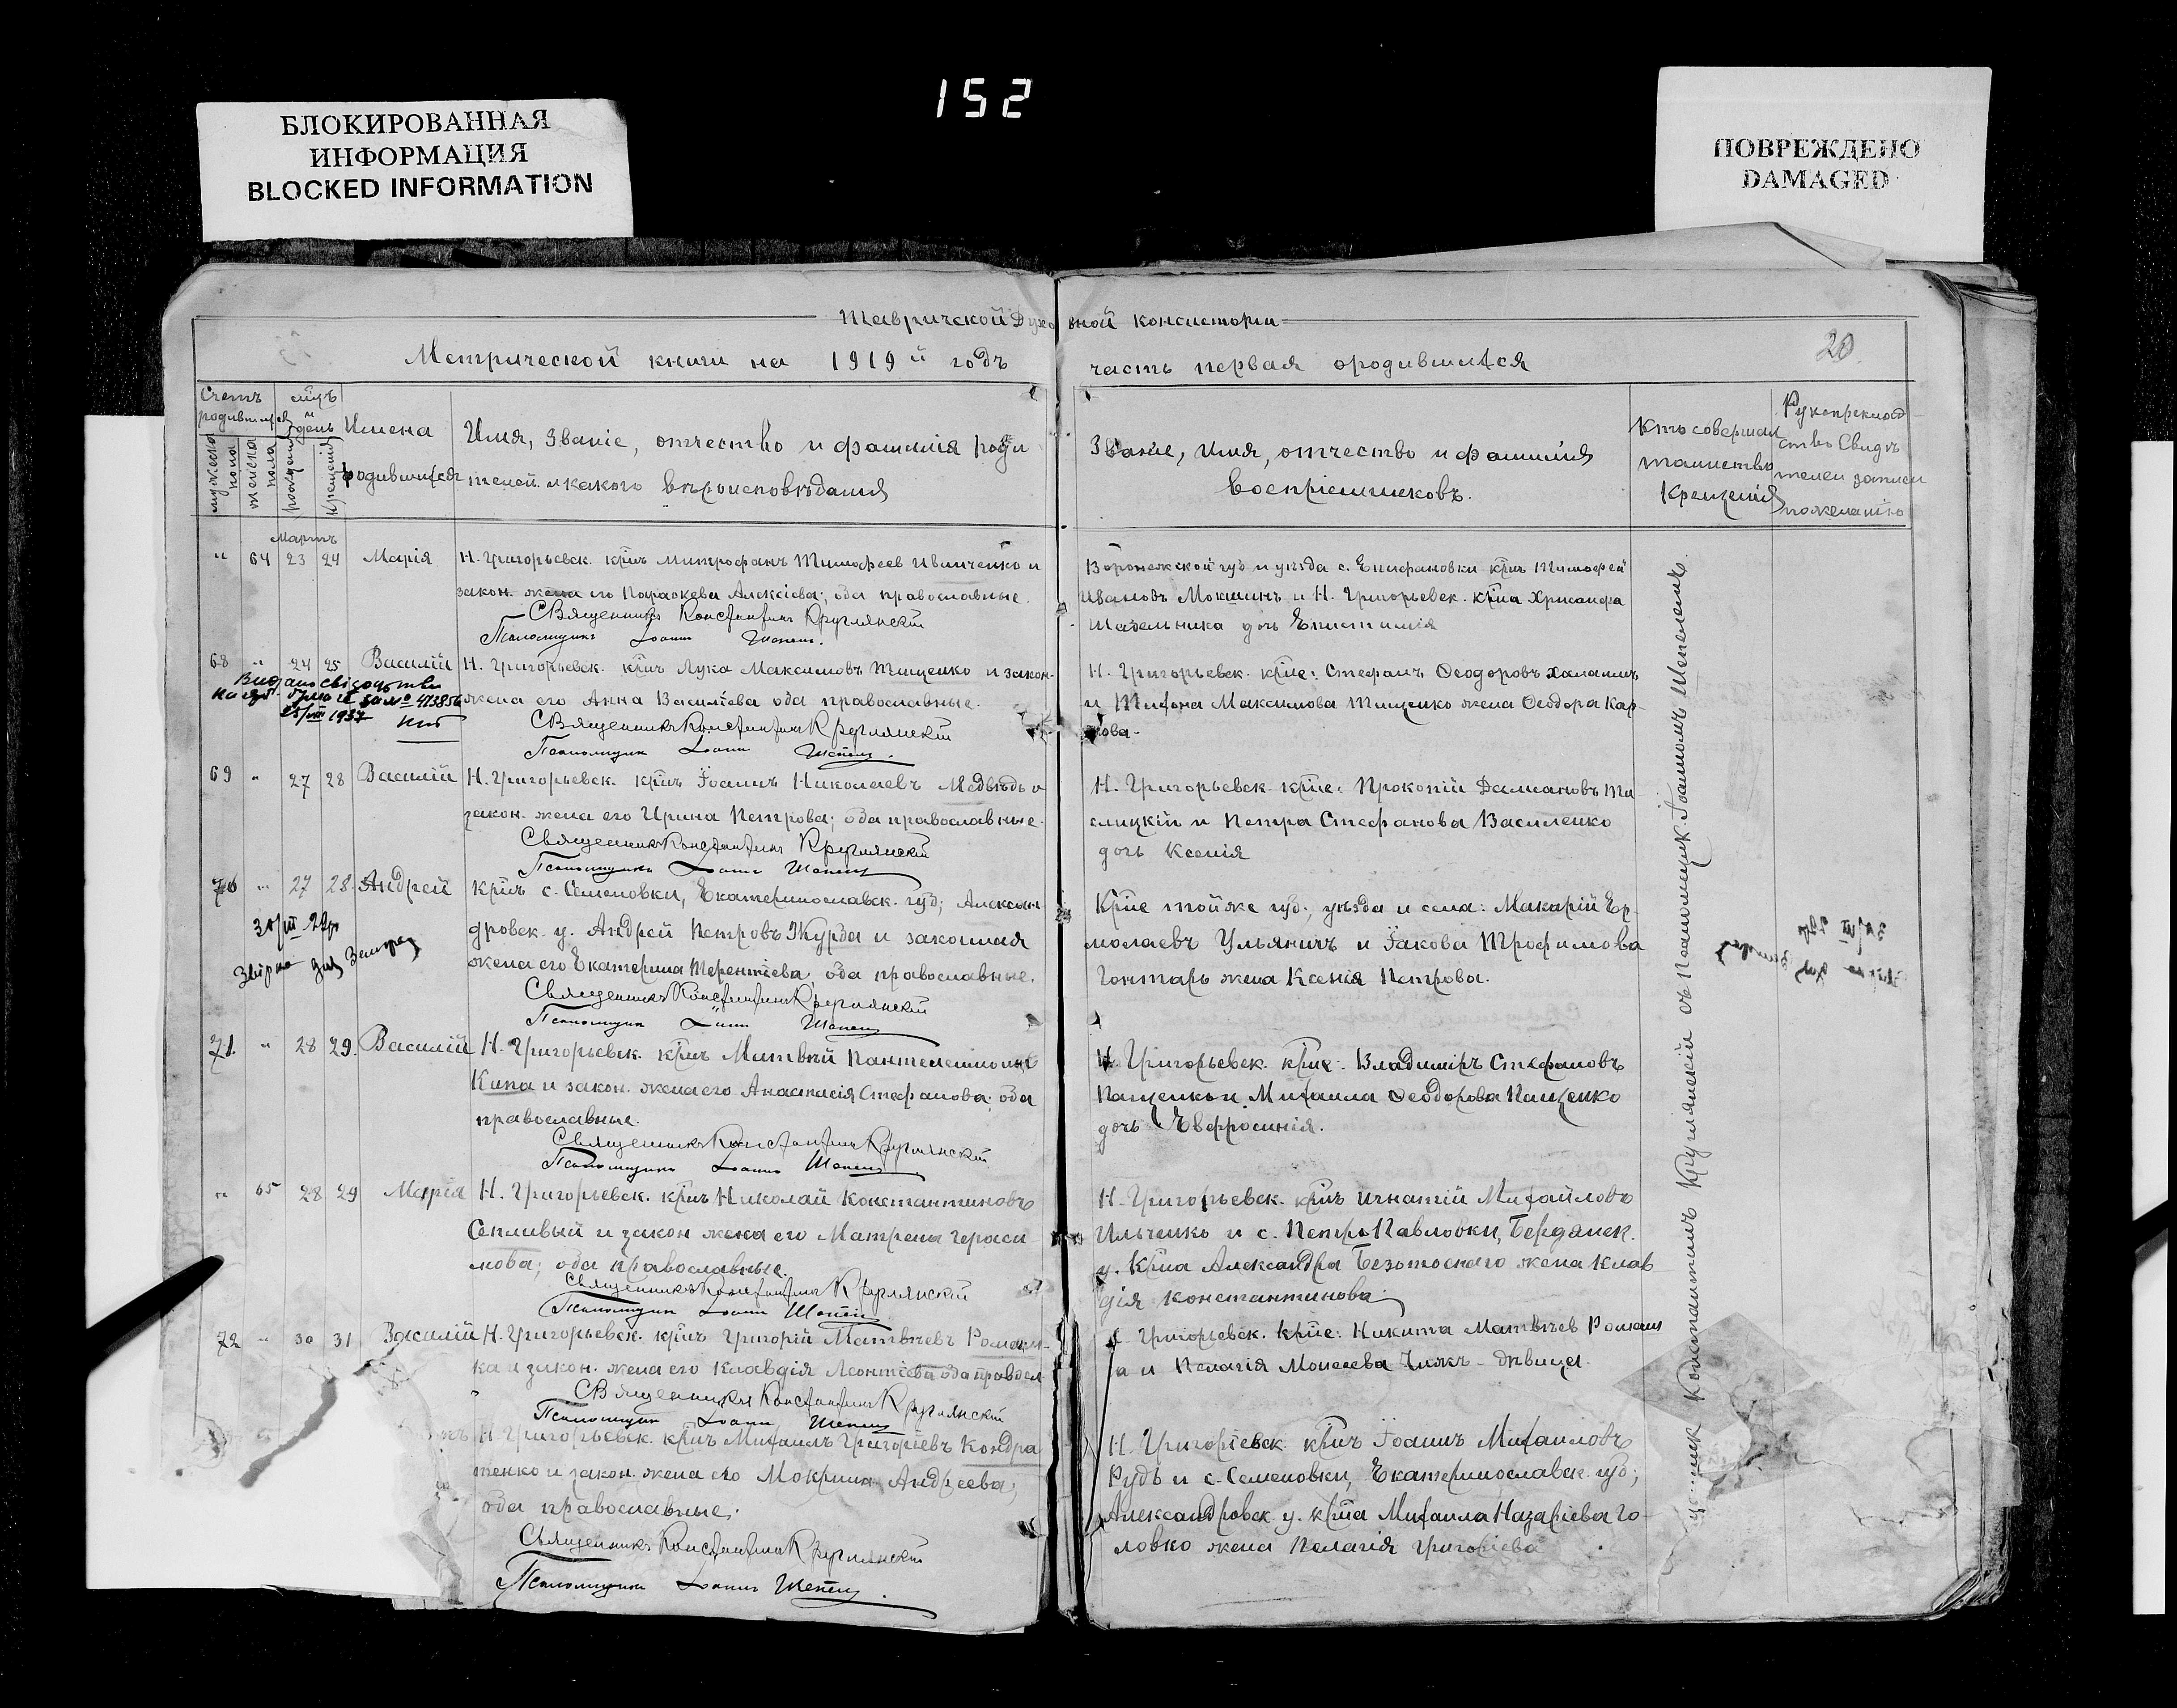 152
БЛОКИРОВАННАЯ
ИНФОРМАЦИЯ
BLOCKED INFORMATION
ПОВРЕЖДЕНО
DAMAGED
Таврической Духовной консисторіи
20
Метрической книги на 1919й годъ часть первая о родившихся
Счетъ родившихся
мужеска пола
женска пола
мцъ и день
рожденія
крещенія
Имена родившихся
Имя, званіе, отчество и фамилія роди
телей и какого вѣроисповѣданія
Званіе, имя, отчество и фамилія
воспріемниковъ.
Кто совершал
таинство
крещенія
Рукоприклад
ство свидѣ
телей записи
по желанію
Мартъ
" 64 23 24 Марія
Н. Григорьевск. крнъ Митрофанъ Тимофеев Иванченко и
закон. жена его Параскева Алексіева; оба православные.
Священникъ Константинъ Круглянскій
Псаломщикъ Іоаннъ Шепель.
Воронежской губ. и уѣзда с. Епифановки крнъ Тимофей
Ивановъ Мокшинъ и Н. Григорьевск. крна Хрисанфа
дочь Епистимія
68 " 24 25 Василій
Н. Григорьевск. крнъ Лука Максимовъ Тищенко и закон.
жена его Анна Василіева оба православные.
Священникъ Константинъ Круглянскій
Псаломщик Іоанн Шепель.
Видано свідоцтво
за № 413856
1937
Н. Григорьевск. крне: Стефанъ Феодоровъ Халанчъ
и Максимова Тищенко жена Феодора Кар-
пова.
69 " 27 28 Василій
Н. Григорьевск. крнъ Іоаннъ Николаевъ Медвѣдь и
закон. жена его Ирина Петрова; оба православные.
Священникъ Константинъ Круглянскій
Псаломщикъ Іоаннъ Шепель
Н. Григорьевск. крне: Прокопій Даміановъ Ти
слицкій и Петра Стефанова Василенко
дочь Ксенія
70 " 27 28 Андрей
крнъ с. Семеновки, Екатеринославск. губ; Алексан
дровск. у. Андрей Петровъ Журба и законная
жена его Екатерина Терентіева, оба православные.
Священникъ Константинъ Круглянскій
Псаломщик Іоанн Шепель
Звірка для
Крне той же губ., уѣзда и села: Макарій Ер-
молаевъ Ульяничъ и Іакова Трофимова
Гонтарь жена Ксенія Петрова.
71. " 28 29. Василій
Н. Григорьевск. крнъ Матвѣй Пантелеимоновъ
Кипа и закон. жена его Анастасія Стефанова; оба
православные.
Священникъ Константинъ Круглянскій
Псаломщикъ Іоаннъ Шепель
Н. Григорьевск. крне: Владиміръ Стефановъ
Пащенко и Михаила Феодорова Пащенко
дочь Евфросинія.
" 65 28 29 Марія
Н. Григорьевск. крнъ Николай Константиновъ
Сепливый и закон жена его Матрена Гераси
мова; оба православные.
Священникъ Константинъ Круглянскій
Псаломщик Іоанн Шепель
Н. Григорьевск. крнъ Игнатій Михайловъ
Ильченко и с. Петро-Павловки, Бердянск.
у. крна Александра Безотоснаго жена Клав
дія Константинова.
72 " 30 31 Василій
Н. Григорьевск. крнъ Григорій Матвѣевъ Роман-
ка и закон. жена его Клавдія Леонтіева оба правосл
Священникъ Константинъ Круглянскій
Псаломщик Іоанн Шепель
Григорьевск. крне: Никита Матвѣев Роман
а и Пелагія Моисеева Чижъ - дѣвица.
Н. Григорьевск. крнъ Михаилъ Григоріевъ Кондра
тенко и закон. жена его Мокрина Андреева;
оба православные.
Священникъ Константинъ Круглянскій
Псаломщик Іоаннъ Шепель.
Н. Григорьевск. крнъ Іоаннъ Михаиловъ
Рудь и с. Семеновки, Екатеринославск. губ;
Александровск. у. крна Михаила Назаріева Го-
ловко жена Пелагія Григоріева
щенник Константинъ Круглянскій съ Псаломщик. Іоанномъ Шепелемъ